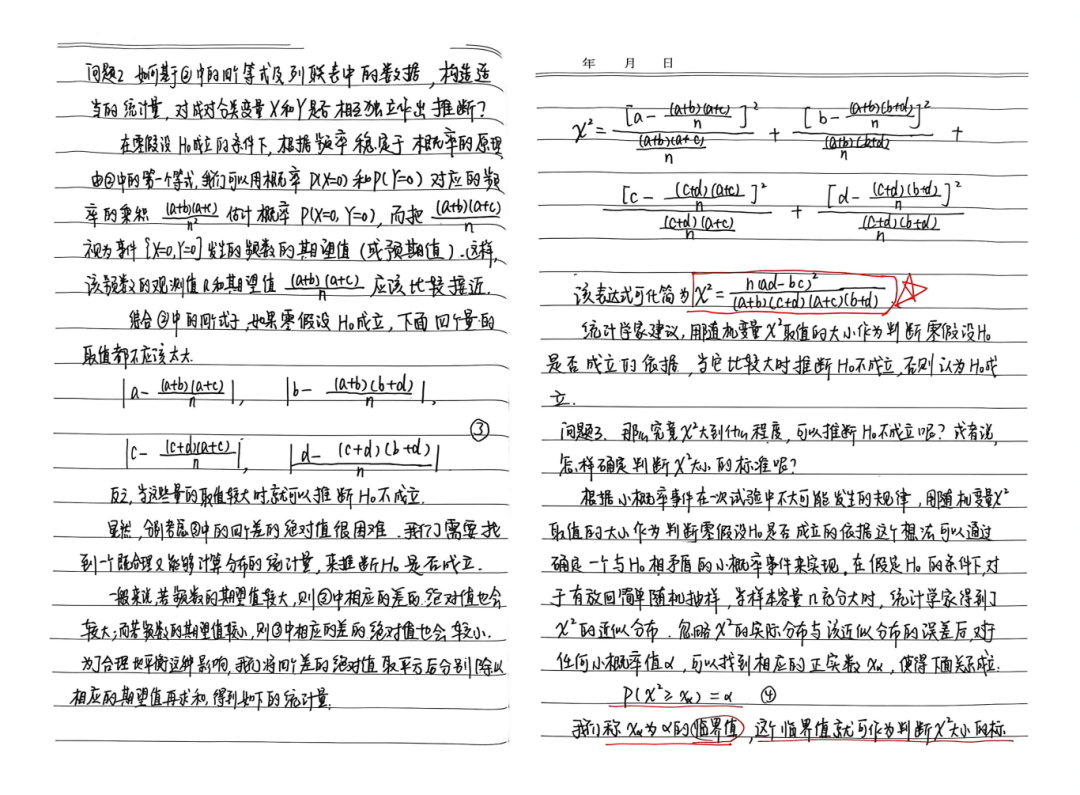 问题2 如何基于②中的四个等式及列联表中的数据，构造适
当的统计量，对成对分类变量X和Y是否相互独立作出推断？
在零假设H₀成立的条件下，根据频率稳定于概率的原理
由②中的第一个等式，我们可以用概率P(X=0)和P(Y=0)对应的频
率的乘积 (a+b)(a+c)/n² 估计概率P(X=0,Y=0)，而把 (a+b)(a+c)/n
视为事件{X=0,Y=0}发生的频数的期望值（或预期值）.这样，
该频数的观测值a和期望值 (a+b)(a+c)/n 应该比较接近.
结合②中的四个式子，如果零假设H₀成立，下面四个量的
取值都不应该太大.
|a- (a+b)(a+c)/n|， |b- (a+b)(b+d)/n|，
③
|c- (c+d)(a+c)/n|， |d- (c+d)(b+d)/n|
反之，当这些量的取值较大时，就可以推断H₀不成立.
显然，分别考虑③中的四个差的绝对值很困难.我们需要找
到一个既合理又能够计算分布的统计量，来推断H₀是否成立.
一般来说，若频数的期望值较大，则③中相应的差的绝对值也会
较大；而若频数的期望值较小，则③中相应的差的绝对值也会较小.
为了合理地平衡这种影响，我们将四个差的绝对值取平方后分别除以
相应的期望值再求和，得到如下的统计量.
年 月 日
χ²= [a- (a+b)(a+c)/n]²/((a+b)(a+c)/n) + [b- (a+b)(b+d)/n]²/((a+b)(b+d)/n) +
[c- (c+d)(a+c)/n]²/((c+d)(a+c)/n) + [d- (c+d)(b+d)/n]²/((c+d)(b+d)/n)
该表达式可化简为 χ²= n(ad-bc)²/((a+b)(c+d)(a+c)(b+d)). ☆
统计学家建议，用随机变量χ²取值的大小作为判断零假设H₀
是否成立的依据，当它比较大时推断H₀不成立，否则认为H₀成
立.
问题3. 那么究竟χ²大到什么程度，可以推断H₀不成立呢？或者说，
怎样确定判断χ²大小的标准呢？
根据小概率事件在一次试验中不大可能发生的规律，用随机变量χ²
取值的大小作为判断零假设H₀是否成立的依据这个想法可以通过
确定一个与H₀相矛盾的小概率事件来实现.在假定H₀的条件下，对
于有放回简单随机抽样，当样本容量n充分大时，统计学家得到了
χ²的近似分布.忽略χ²的实际分布与该近似分布的误差后，对于
任何小概率值α，可以找到相应的正实数xα，使得下面关系成立.
P(χ²≥xα)=α ④
我们称xα为α的临界值，这个临界值就可作为判断χ²大小的标